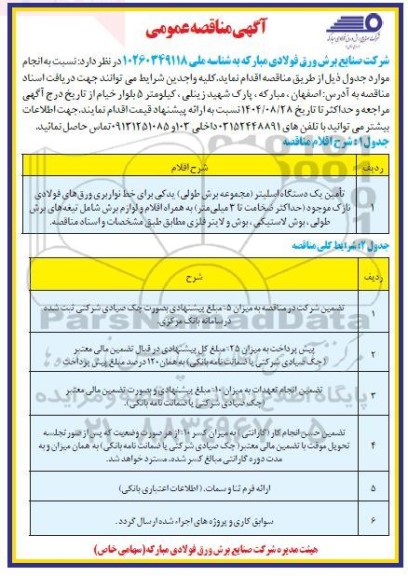 آگهی مناقصه عمومی
شرکت صنایع برش ورق فولادی مبارکه
شرکت صنایع برش ورق فولادی مبارکه به شناسه ملی ۱۰۲۶۰۳۴۹۱۱۸ در نظر دارد: نسبت به انجام
موارد جدول ذیل از طریق مناقصه اقدام نماید. کلیه واجدین شرایط می توانند جهت دریافت اسناد
مناقصه به آدرس: اصفهان ، مبارکه ، پارک شهید زینلی ، کیلومتر ۵ بلوار خیام از تاریخ درج آگهی
مراجعه و حداکثر تا تاریخ ۱۴۰۴/۰۸/۲۸ نسبت به ارائه پیشنهاد قیمت اقدام نمایند. جهت اطلاعات
بیشتر می توانید با تلفن های ۰۳۱۵۲۴۴۸۸۹۱ داخلی ۱۰۳ و ۰۹۱۳۱۲۵۱۰۸۵ تماس حاصل نمائید.
جدول ۱: شرح اقلام مناقصه
ردیف شرح اقلام
۱ تأمین یک دستگاه اسلیتر (مجموعه برش طولی) یدکی برای خط نواربری ورق‌های فولادی
نازک موجود (حداکثر ضخامت تا ۳ میلی‌متر) به همراه اقلام و لوازم برش شامل تیغه‌های برش
طولی ، بوش لاستیکی ، بوش و لاینر فلزی مطابق طبق مشخصات و اسناد مناقصه.
جدول ۲: شرایط کلی مناقصه
ردیف شرح
۱ تضمین شرکت در مناقصه به میزان ۵٪ مبلغ پیشنهادی بصورت چک صیادی شرکتی ثبت شده
در سامانه بانک مرکزی.
۲ پیش پرداخت به میزان ۲۵٪ مبلغ کل پیشنهادی در قبال تضمین مالی معتبر
(چک صیادی شرکتی یا ضمانت نامه بانکی) به همان ۱۲۰ درصد مبلغ پیش پرداخت
۳ تضمین انجام تعهدات به میزان ۱۰٪ مبلغ پیشنهادی و بصورت تضمین مالی معتبر
(چک صیادی شرکتی یا ضمانت نامه بانکی).
۴ تضمین حسن انجام کار (گارانتی) به میزان کسر ۱۰٪ از هر صورت وضعیت که پس از صور تجلسه
تحویل موقت با تضمین مالی معتبر (چک صیادی شرکتی یا ضمانت نامه بانکی) به همان میزان و به
مدت دوره گارانتی مبالغ کسر شده، مسترد خواهد شد.
۵ ارائه فرم ثنا و سمات. (اطلاعات اعتباری بانکی)
۶ سوابق کاری و پروژه های اجراء شده ارسال گردد.
هیئت مدیره شرکت صنایع برش ورق فولادی مبارکه (سهامی خاص)
ParsNamadData